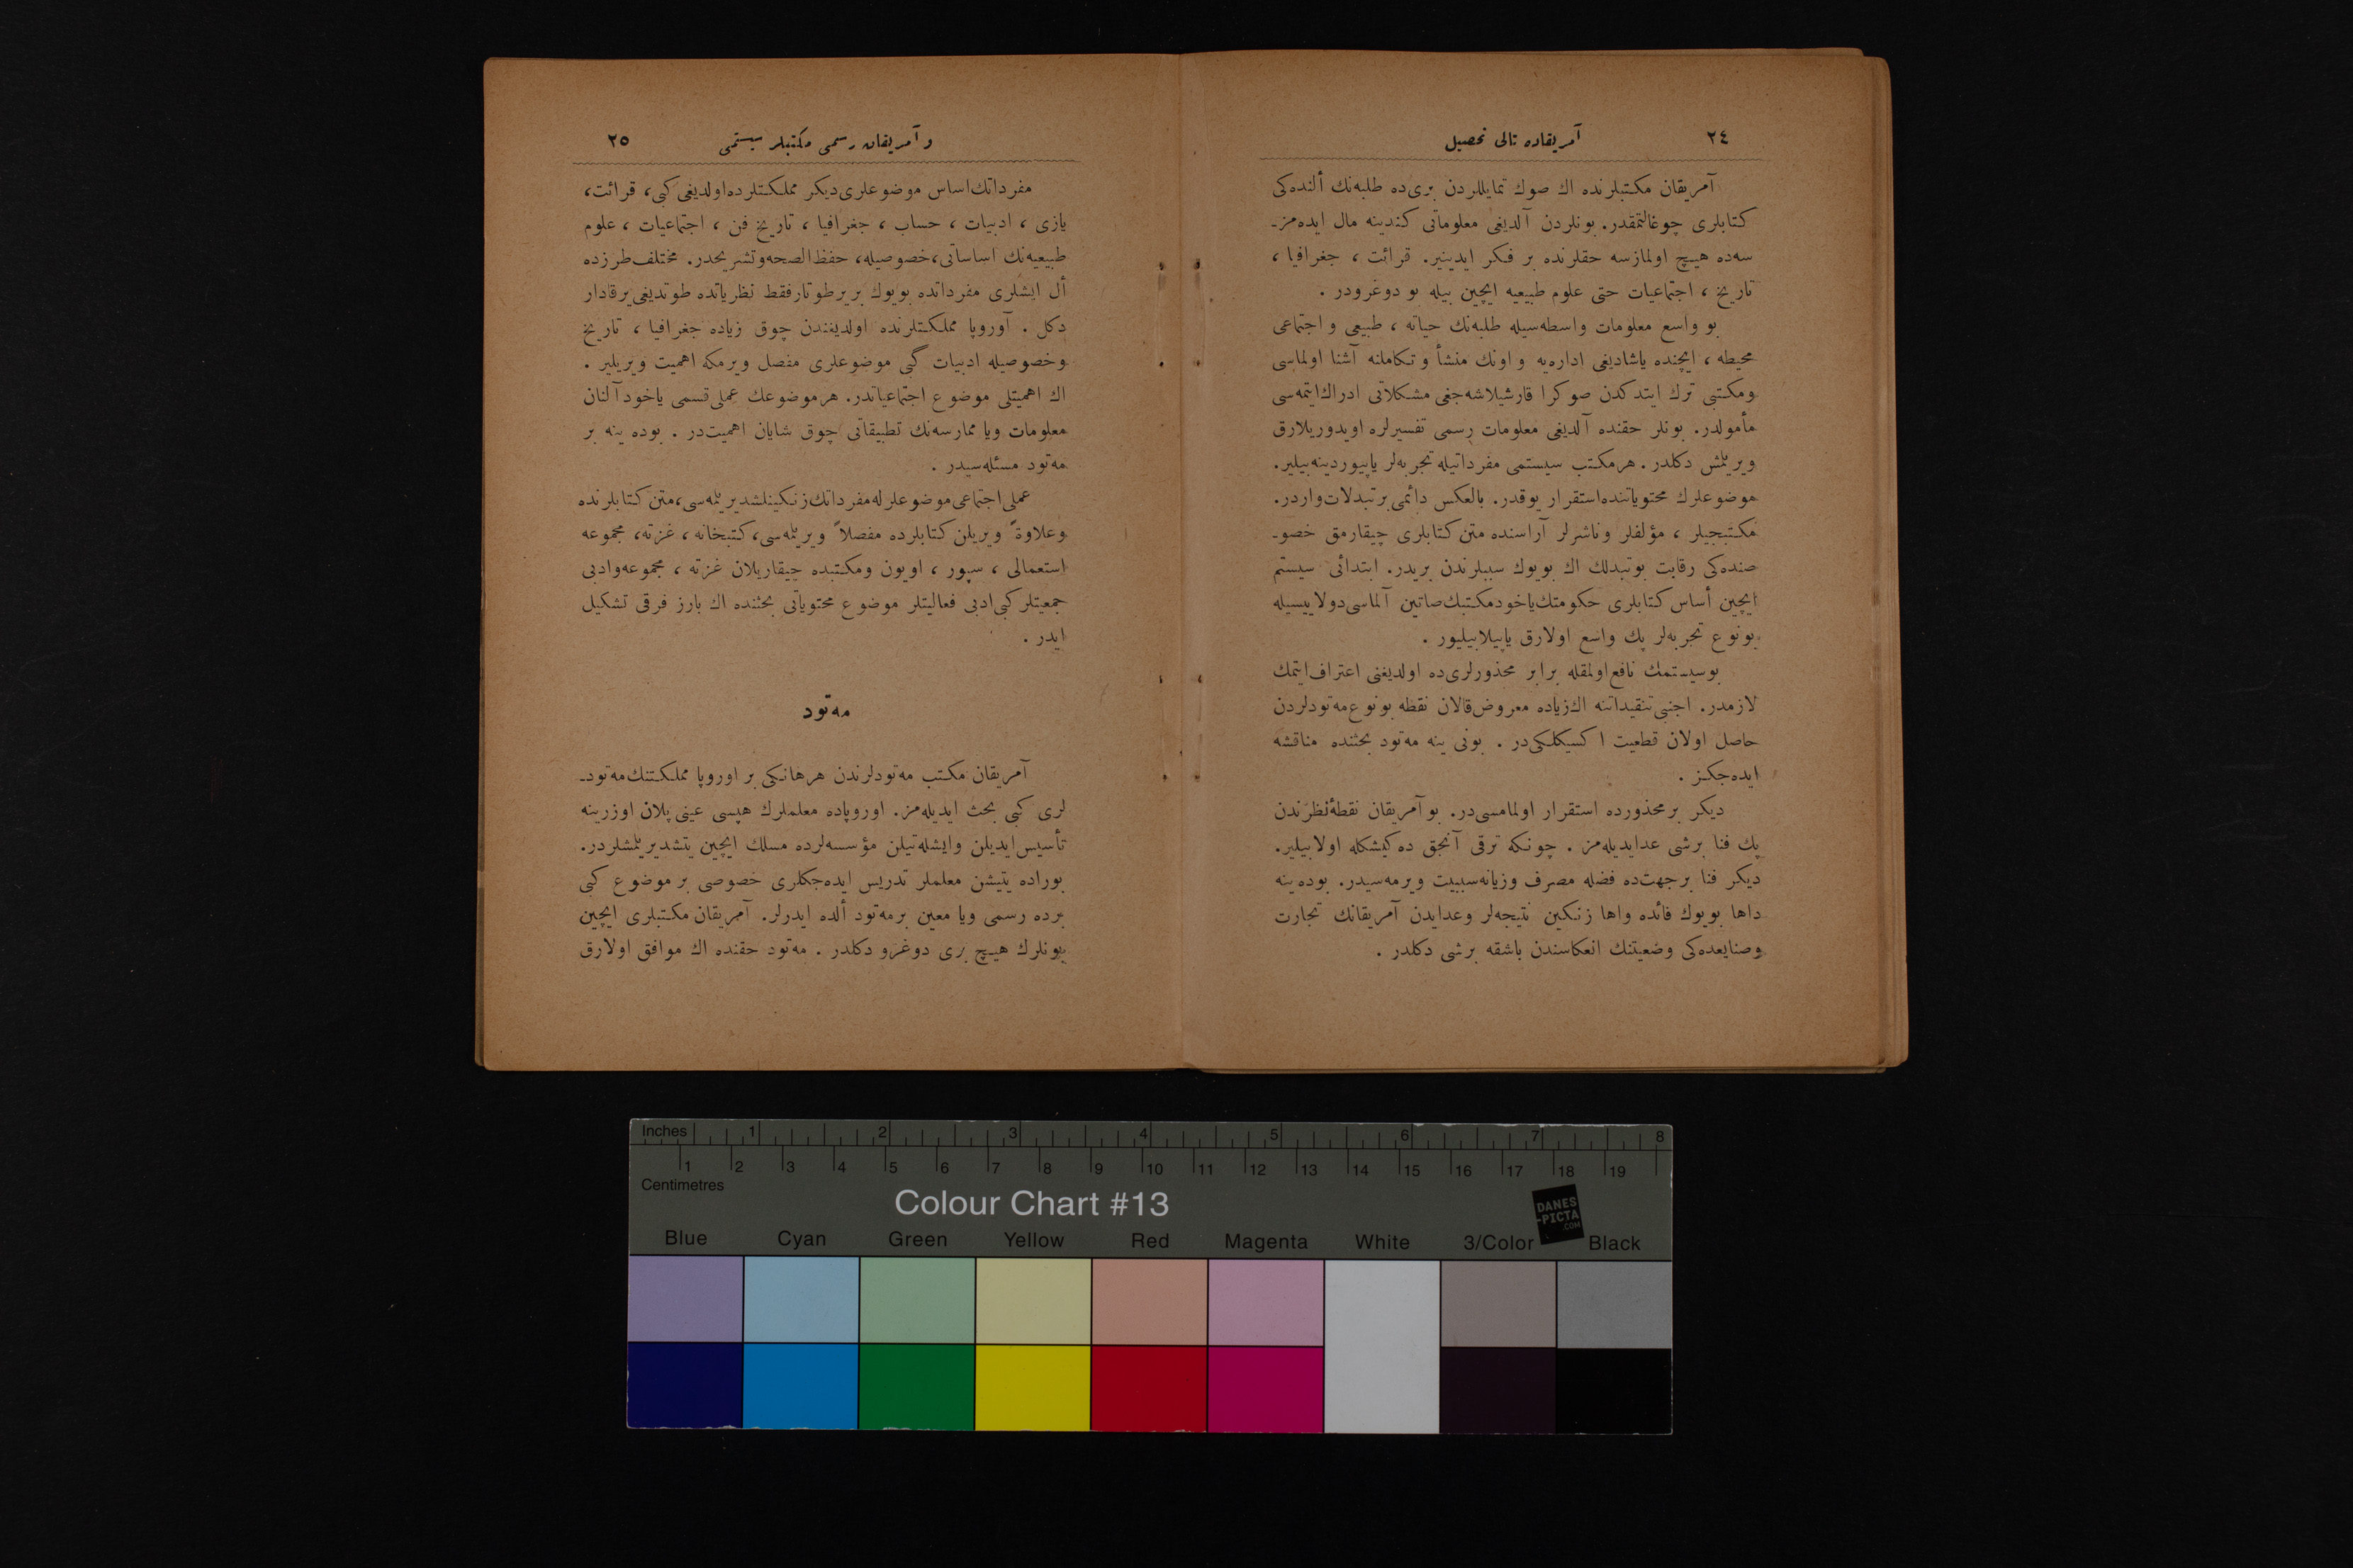 ٢٤
آمریقاده تالی تحصیل
آمریقان مکتبلرنده اك صوك تمایللردن بری‌ده طلبه‌نك ألنده‌کی
کتابلری چوغالتمقدر. بونلردن آلدیغی معلوماتی کندینه مال ایده‌مز-
سه‌ده هیچ اولمازسه حقلرنده بر فکر ایدینیر. قرائت ، جغرافیا ،
تاریخ ، اجتماعیات حتی علوم طبیعیه ایچین بیله بو دوغرودر .
بو واسع معلومات واسطه‌سیله طلبه‌نك حیاته ، طبیعی و اجتماعی
محیطه ، ایچنده یاشادیغی اداره‌یه و اونك منشأ و تکاملنه آشنا اولماسی
ومکتبی ترك ایتدکدن صوکرا قارشیلاشه‌جغی مشکلاتی ادراك ایتمه‌سی
مأمولدر. بونلر حقنده آلدیغی معلومات رسمی تفسیرلره اویدوریلارق
ویریلمش دکلدر . هر مکتب سیستمی مفرداتیله تجربه‌لر یاپیوردینه‌بیلیر.
موضوعلرك محتویاتنده استقرار یوقدر. بالعکس دائمی بر تبدلات واردر.
مکتبجیلر ، مؤلفلر و ناشرلر آراسنده متن کتابلری چیقارمق خصو-
صنده‌کی رقابت بوتبدلك اك بویوك سببلرندن بریدر. ابتدائی سیستم
ایچین أساس کتابلری حکومتك یاخود مکتبك صاتین آلماسی دولاییسیله
بونوع تجربه‌لر پك واسع اولارق یاپیلابیلیور .
بوسیستمك نافع اولمقله برابر محذورلری‌ده اولدیغنی اعتراف ایتمك
لازمدر. اجنبی تنقیداتنه اك زیاده معروض قالان نقطه بونوع مه‌تودلردن
حاصل اولان قطعیت اکسیکلکی‌در . بونی ینه مه‌تود بحثنده مناقشه
ایده‌جکز .
دیکر بر محذورده استقرار اولمامسی‌در. بو آمریقان نقطهٔ نظرندن
پك فنا برشی عدایدیله‌مز . چونکه ترقی آنجق ده‌کیشکله اولابیلیر.
دیکر فنا بر جهت‌ده فضله مصرف وزیانه سببیت ویرمه‌سیدر. بوده ینه
داها بویوك فائده واها زنکین نتیجه‌لر وعدایدن آمریقانك تجارت
وصنایعده‌کی وضعیتنك انعکاسندن باشقه برشی دکلدر .
و آمریقان رسمی مکتبلر سیستمی
٢٥
مفرداتك اساس موضوعلری دیکر مملکتلرده اولدیغی کبی، قرائت،
یازی ، ادبیات ، حساب ، جغرافیا ، تاریخ فن ، اجتماعیات ، علوم
طبیعیه‌نك اساساتی، خصوصیله، حفظ الصحه وتشریحدر. مختلف طرزده
أل ایشلری مفرداتده بویوك بر یر طوتار فقط نظریاتده طوتدیغی یر قادار
دکل . آوروپا مملکتلرنده اولدیغندن چوق زیاده جغرافیا ، تاریخ
وخصوصیله ادبیات گبی موضوعلری مفصل ویرمکه اهمیت ویریلیر .
اك اهمیتلی موضوع اجتماعیاتدر. هر موضوعك عملی قسمی یاخود آلنان
معلومات ویا ممارسه‌نك تطبیقاتی چوق شایان اهمیت‌در . بوده ینه بر
مه‌تود مسئله‌سیدر .
عملی اجتماعی موضوعلرله مفرداتك زنکینلشدیریلمه‌سی، متن کتابلرنده
وعلاوةً ویریلن کتابلرده مفصلاً ویریلمه‌سی، کتبخانه ، غزته، مجموعه
استعمالی ، سپور ، اویون ومکتبده چیقاریلان غزته ، مجموعه وادبی
جمعیتلر کبی ادبی فعالیتلر موضوع محتویاتی بحثنده اك بارز فرقی تشکیل
ایدر .
مه‌تود
آمریقان مکتب مه‌تودلرندن هرهانکی بر اوروپا مملکتنك مه‌تود-
لری کبی بحث ایدیله‌مز. اوروپاده معلملرك هپسی عینی پلان اوزرینه
تأسیس ایدیلن وایشله‌تیلن مؤسسه‌لرده مسلك ایچین یتشدیریلمشلردر.
بوراده یتیشن معلملر تدریس ایده‌جکلری خصوصی بر موضوع کبی
برده رسمی ویا معین بر مه‌تود ألده ایدرلر. آمریقان مکتبلری ایچین
بونلرك هیچ بری دوغرو دکلدر . مه‌تود حقنده اك موافق اولارق
Inches 1 2 3 4 5 6 7 8
1 2 3 4 5 6 7 8 9 10 11 12 13 14 15 16 17 18 19
Centimetres
Colour Chart #13
DANES
-PICTA
.COM
Blue Cyan Green Yellow Red Magenta White 3/Color Black